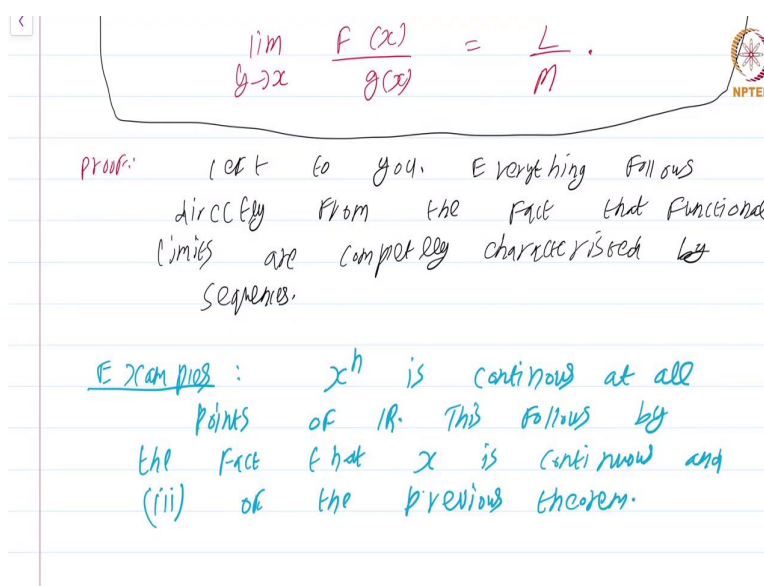 lim F(x) = L
y→x g(x) M .
NPTEL
Proof: Left to you. Everything follows
directly from the fact that functional
limits are completely characterised by
sequences.
Examples : xⁿ is continous at all
points of IR. This follows by
the fact that x is continuous and
(iii) of the previous theorem.